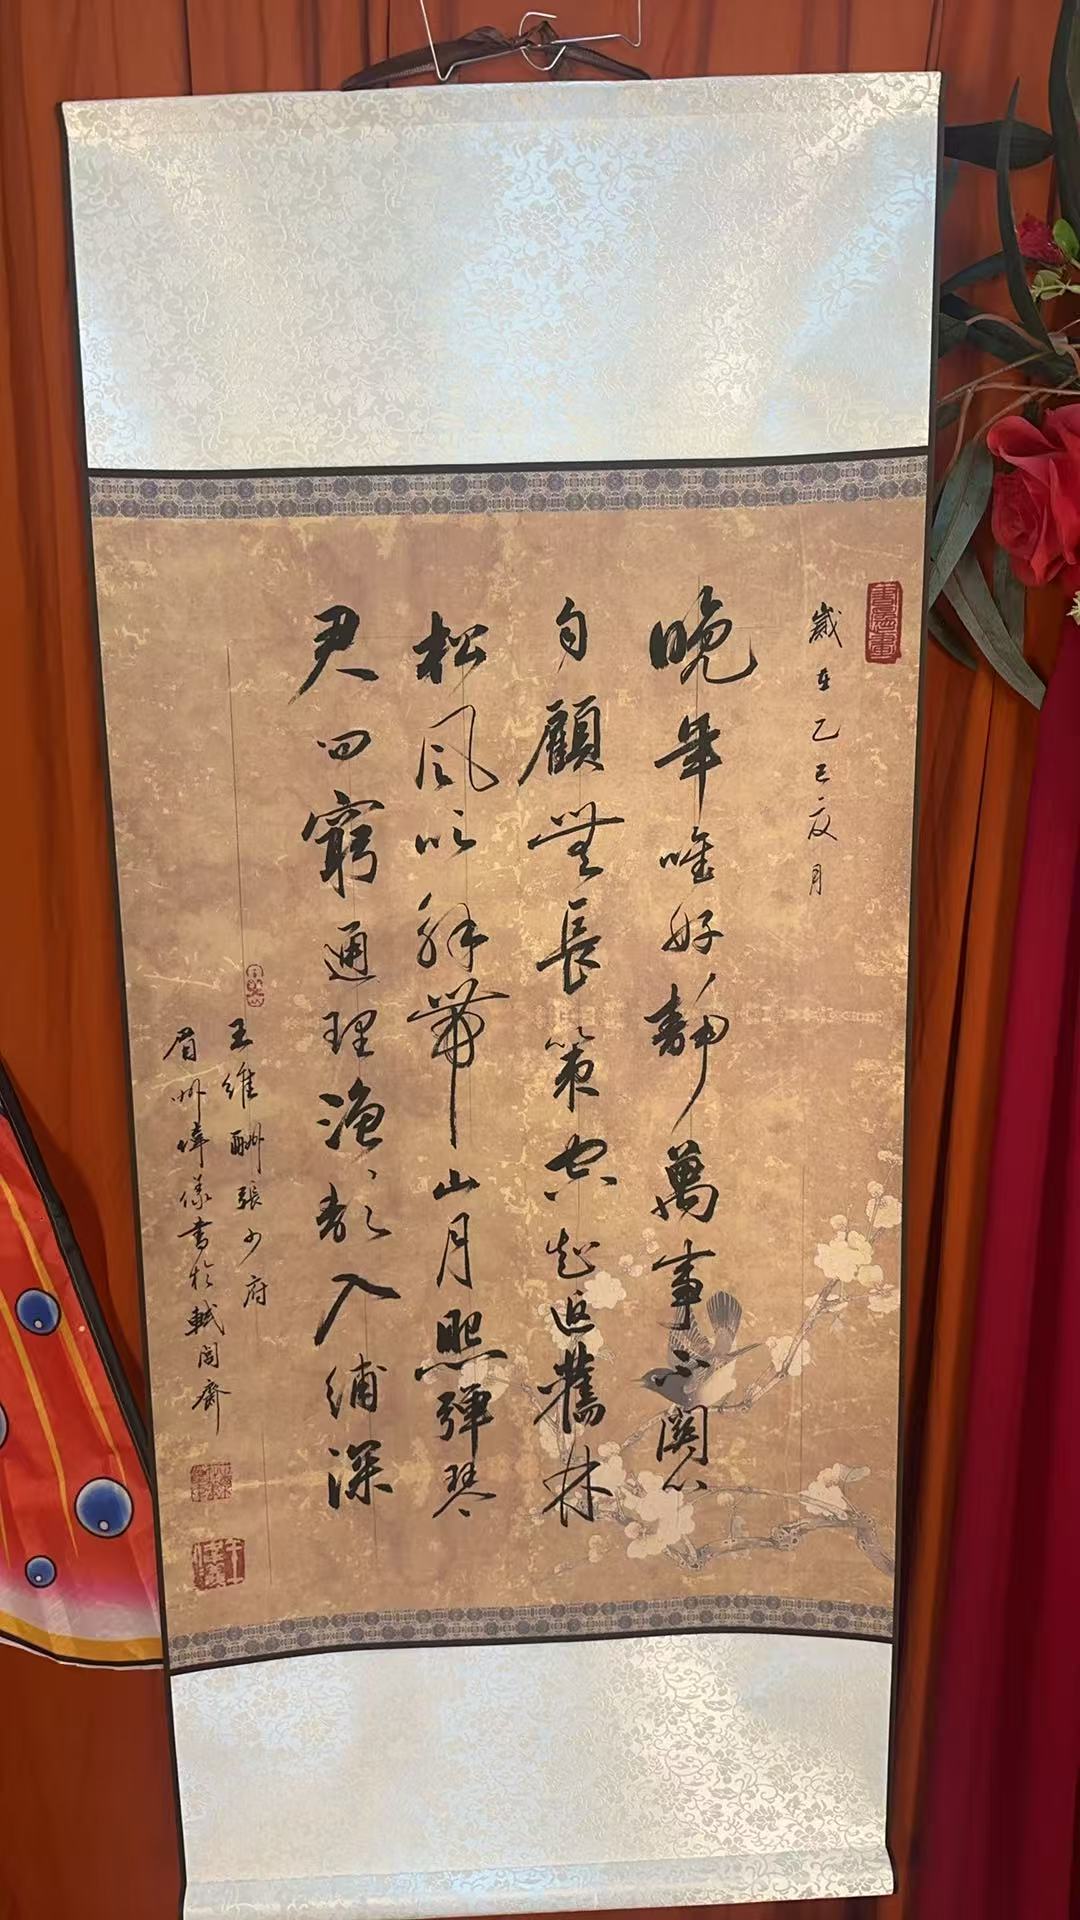 歲在乙巳夏月
晚年唯好靜萬事不關心
自顧無長策空知返舊林
松風吹解帶山月照彈琴
君問窮通理漁歌入浦深
王維酬張少府
眉州偉儀書於軾閣齋